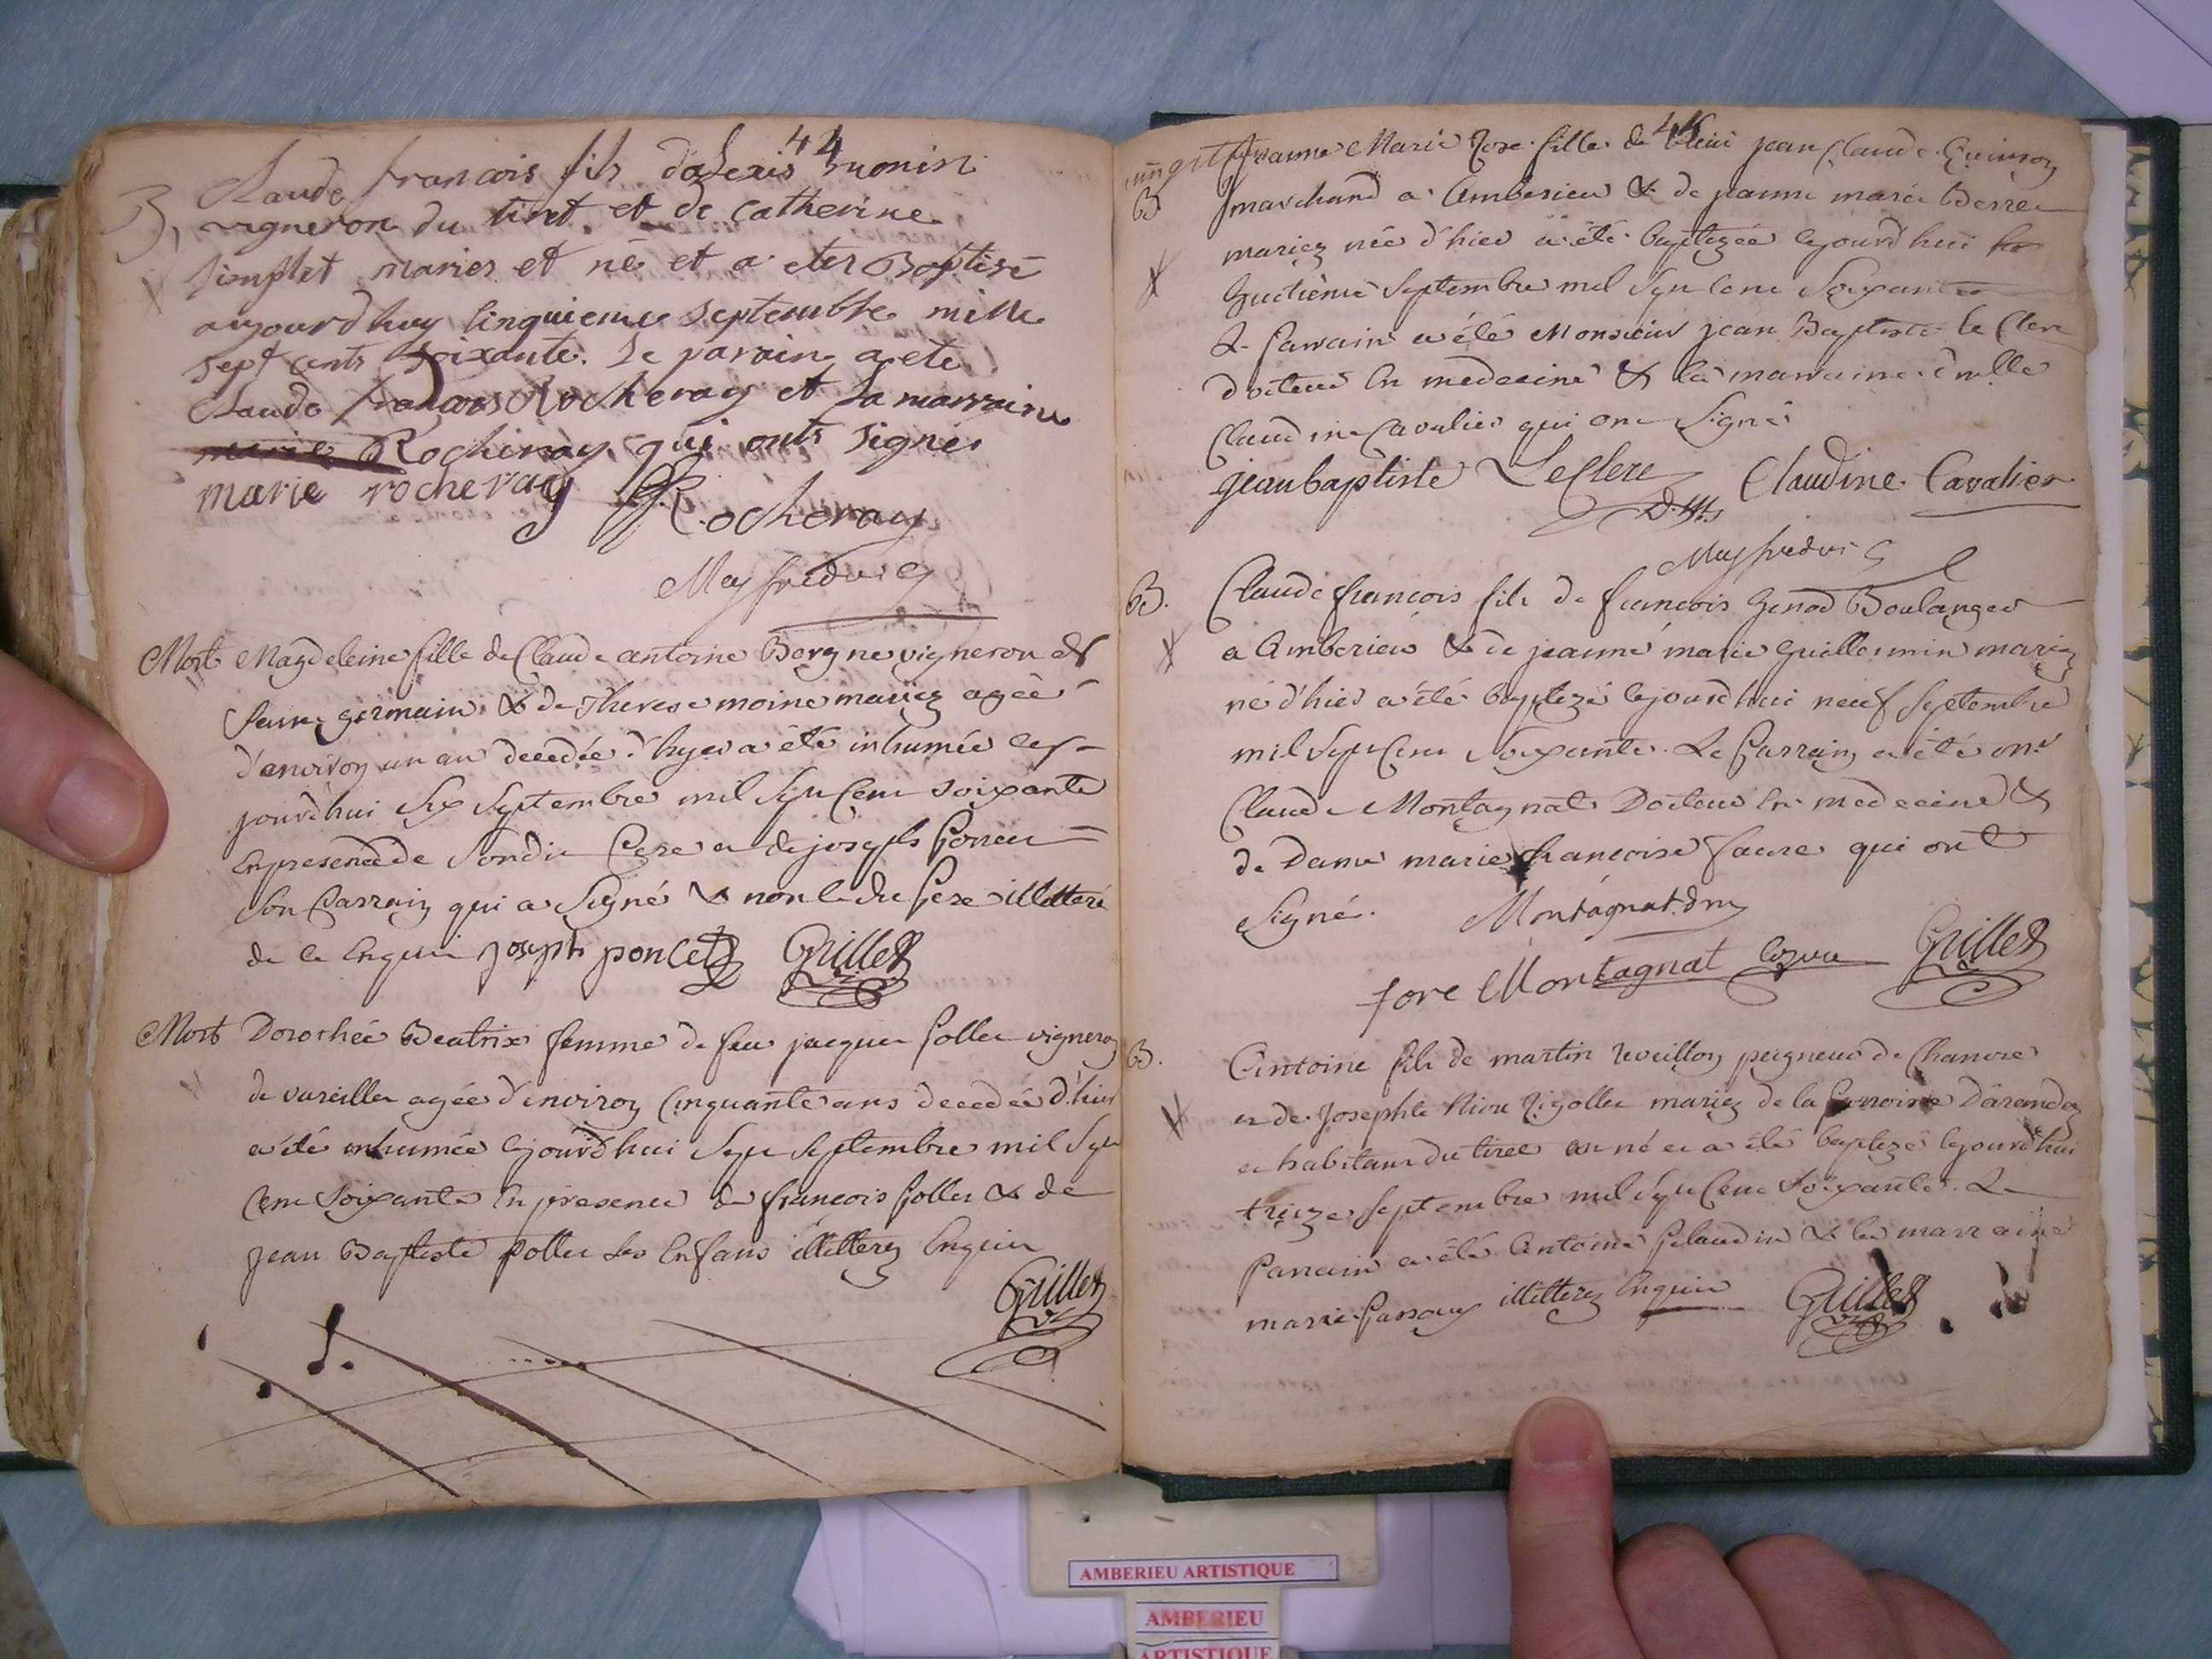 44
B, Claude francois fils dalexis
vigneron du tiret et de Catherine
simplet maries et né et a eter Baptisé
aujourdhuy cinquieme septembre mille
sept cents soixante. Le parain a ete
Claude francois Rocheray et la marraine
marie Rocheray qui onts signés
marie rocheray Rocheray
Meyfredvi
Mort Magdeleine fille de Claude antoine Bergne vigneron de
saint germain & de Therese moine mariez agée
d'environ un an decedée d'hyer a été inhumée cej-
jourd'hui six septembre mil sept cent soixante
en presence de son dit Pere et de joseph Poncet
son Parrain qui a signé & non le dit Pere illitteré
de ce Enquis joseph poncet Grillet
Mort Dorothée Beatrix femme de feu jacques follet vigneron
de vareilles agée d'environ Cinquante ans decedée d'hier
a été inhumée cejourd'hui sept septembre mil sept
cent soixante En presence de francois follet & de
jean Baptiste follet ses Enfans illitterez Enquis
Grillet
44
jeanne Marie Rose fille de sieur jean Claude Quinson
B marchand a Amberieu & de jeanne marie
mariez née d'hier a été baptizée cejourd'hui
huitième septembre mil sept cent soixante
Le Parrain a été Monsieur jean Baptiste le Clerc
docteur En medecine & la marraine d'mlle
Claudine Cavalier qui ont signé
jean baptiste LeClerc Claudine Cavalier
Meyfredvi
B. Claude françois fils de françois Genod Boulanger
a Amberieu & de jeanne marie Guillermin mariez
né d'hier a été baptizé cejourd'hui neuf septembre
mil sept cent soixante. Le Parrain a été mr
Claude Montagnat Docteur En medecine &
de Dame marie francoise faure qui ont
Signé. Montagnat dm
fore Montagnat Grillet
B. Antoine fils de martin peigneur de Chanvre
et de Josephte mariez de la Parroisse D'arandas
et habitans du tiret est né et a été baptizé cejourd'hui
treize septembre mil sept cent soixante. Le
Parrain a été Antoine & la marraine
marie illitterez Enquis Grillet
AMBERIEU ARTISTIQUE
AMBERIEU
ARTISTIQUE